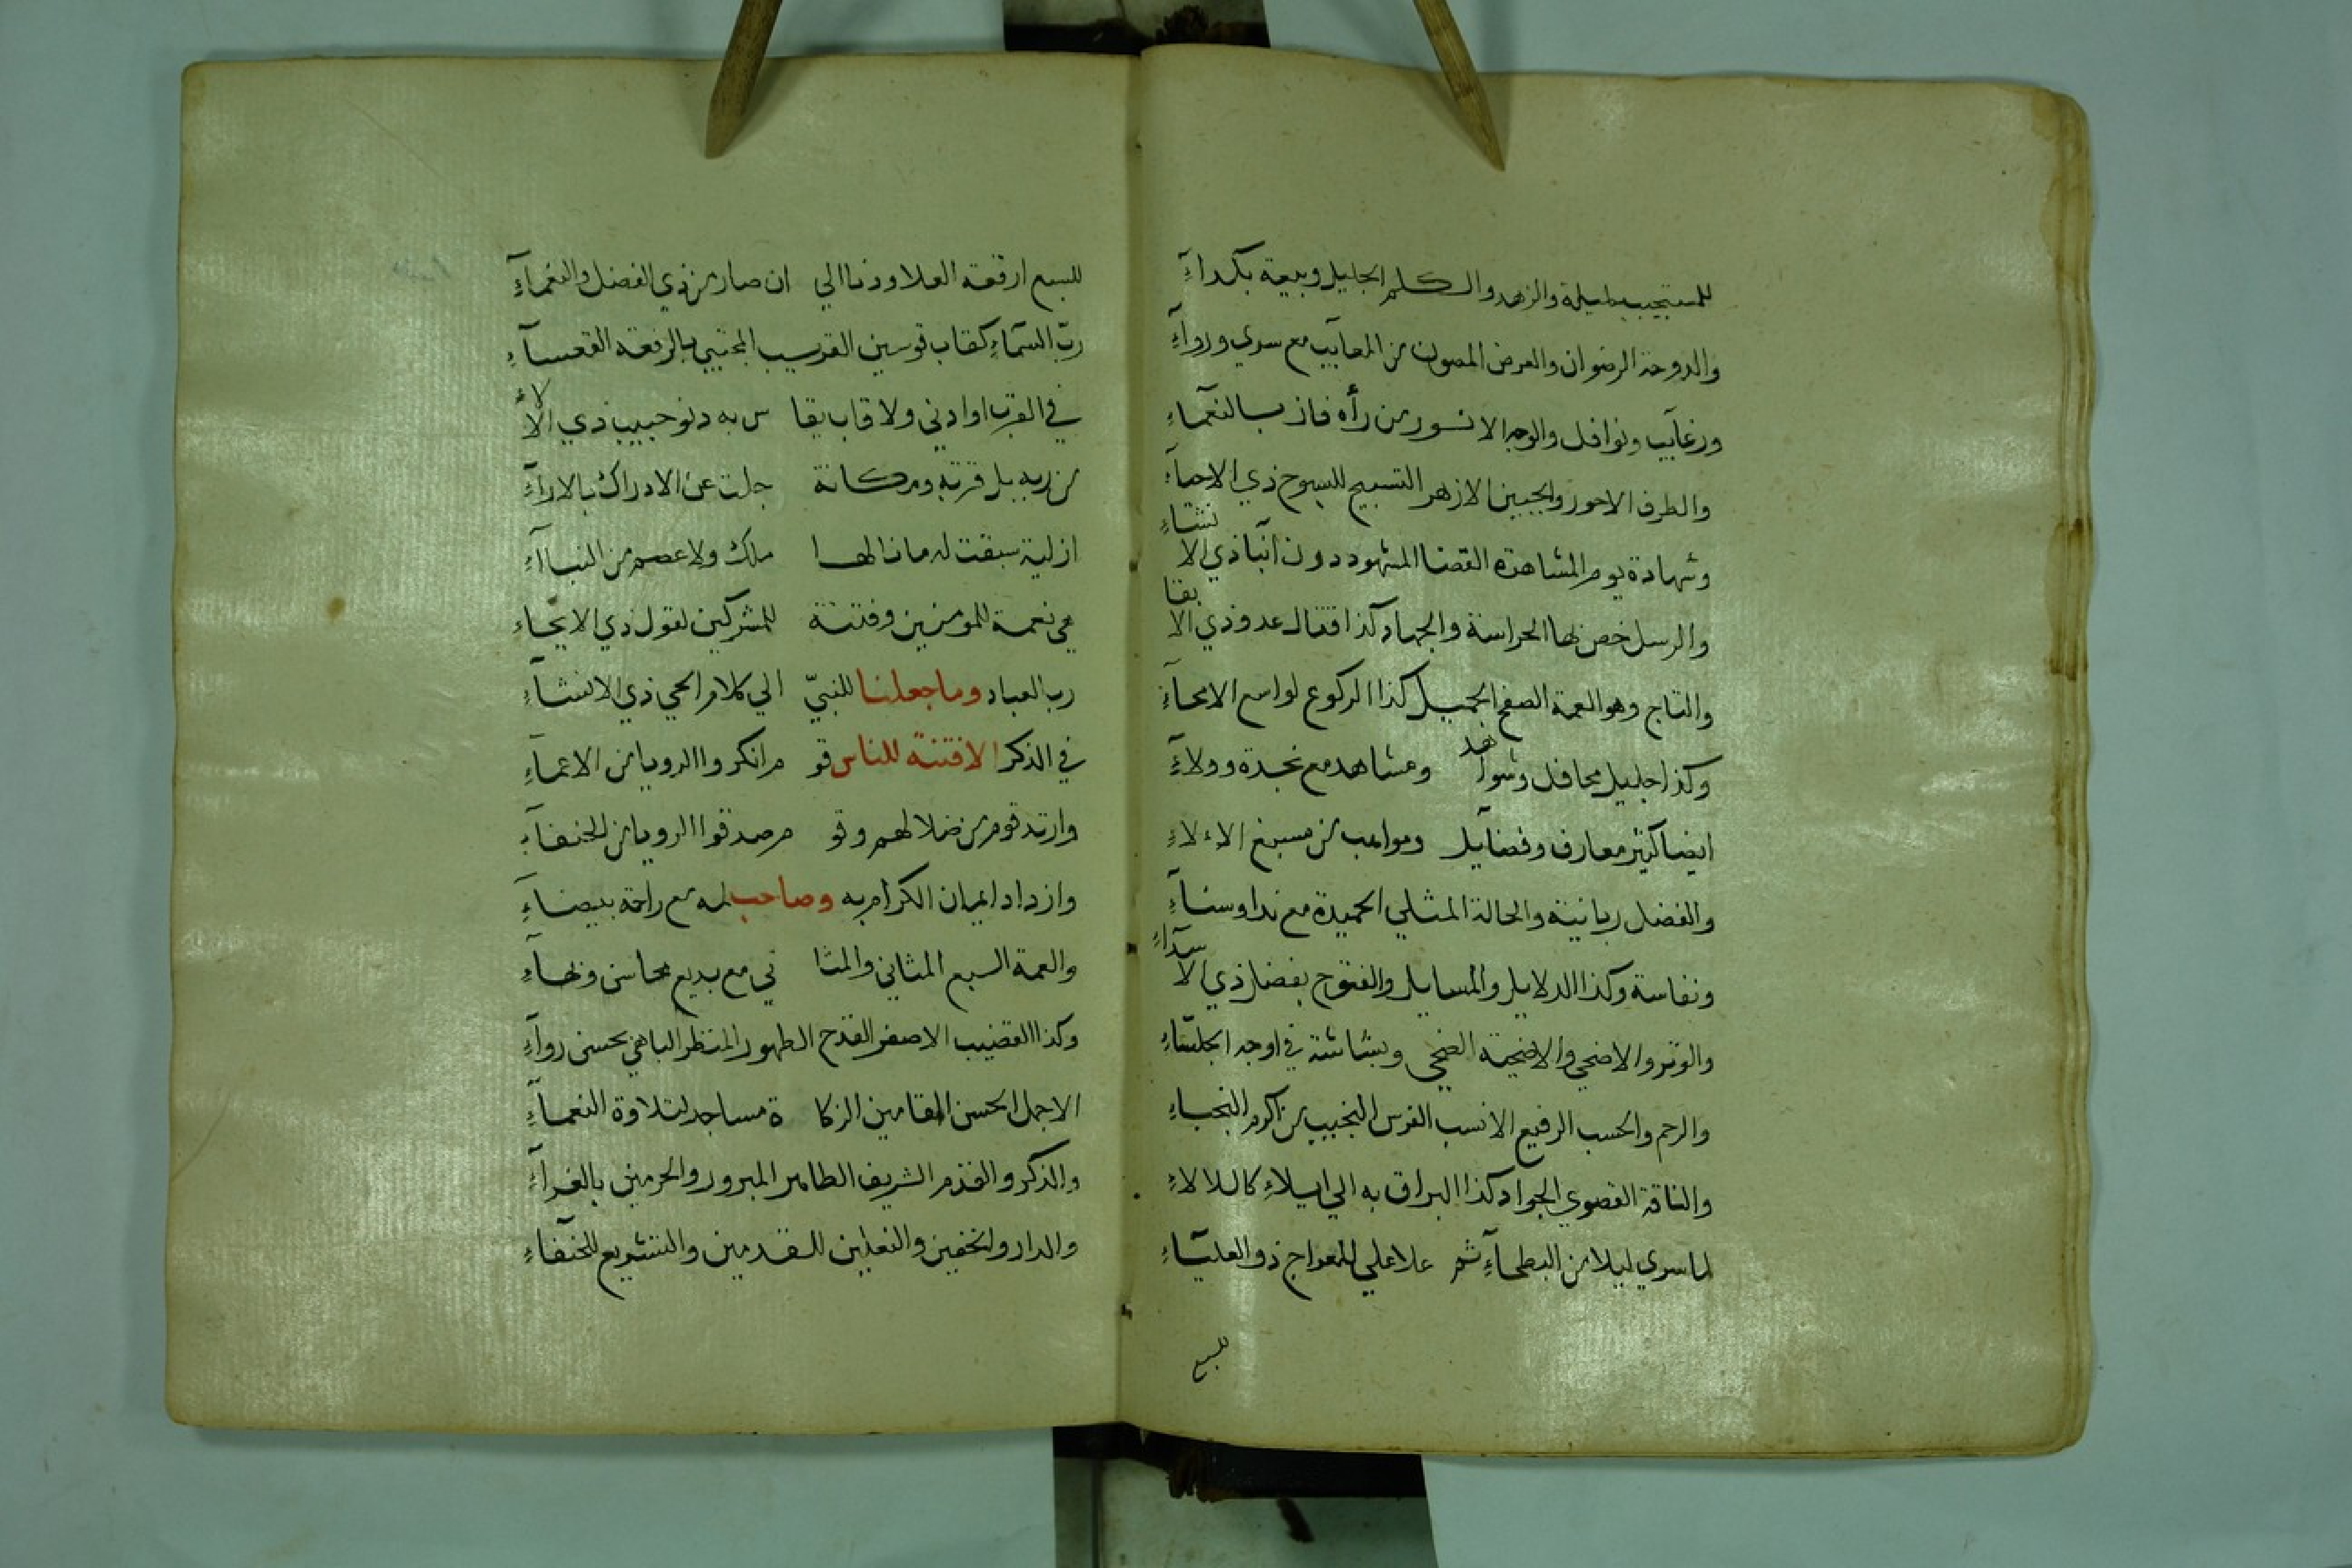 للمستجيب طيلة والزهد والكلم الجليل وبيعة بكداءِ
والدوحة الرضوان والعرض المصون من المعايب مع سدي ورواءِ
ورغايب ونوافل والوجه الانور من رأه فاز بالنعماءِ
والطرف الاحور والجبين الازهر التسبيح للسبوح ذي الاحياءِ
وشهادة يوم المشاهدة القضا المشهود دون انبا ذي الانشاءِ
والرسل خص بها الحراسة والجهاد كذا قتال عدو ذي الابقا
والتاج وهو العمة الصفح الجميل كذا الركوع لواسع الامحاءِ
وكذا جليل محافل وشواهد ومشاهد مع نجدة وولاءِ
ايضا كثير معارف وفضايل ومواهب من مسبغ الالاءِ
والفضل ربانية والحالة المثلي الحميدة مع ندا وسناءِ
ونفاسة وكذا الدلايل والمسايل والفتوح بفضل ذي الاسداءِ
والوتر والاضحي والاضحية الضحي وبشاشة في اوجه الجلساءِ
والرحم والحسب الرفيع الانسب الفرس النجيب من اكرم النجباءِ
والناقة القصوي الجواد كذا البراق به الي ايلاءِ كاللالاءِ
لما سري ليلا من البطحاءِ ثم علا علي المعراج ذو العلياءِ
للسبع
للسبع ارقعة العلا ودنا الي ان صار من ذي الفضل والنعماءِ
ربّ السماءِ كقاب قوسين القريب المجتبي بالرفعة القعساءِ
في القرب او ادني ولا قاب يقا س به دنو حبيب ذي الالاءِ
من ربه بل قربة ومكانة جلت عن الادراك بالاراءِ
ازلية سبقت له ما نالها ملك ولا عصم من النباءِ
هي نعمة للمومنين وفتنة للمشركين لقول ذي الايحاءِ
رب العباد وما جعلنا للنبيّ الي كلام الحي ذي الانشاءِ
في الذكر الا فتنة للناس قو م انكروا الرويا من الاعماءِ
وارتد قوم من ضلالهم وقو م صدقوا الرويا من الحنفاءِ
وازداد ايمان الكرام به وصاحب لمه مع راحة بيضاءِ
والعمة السبع المثاني والمثا ني مع بديع محاسن وبهاءِ
وكذا القضيب الاصفر القدح الطهور المنظر الباهي بحسن رواءِ
الاجمل الحسن المقامين الزكا ة مساجد لتلاوة النعماءِ
والذكر والقدم الشريف الطاهر المبرور والحرمين بالغراءِ
والدار والخفين والنعلين للقدمين والتشريع للحنفاءِ